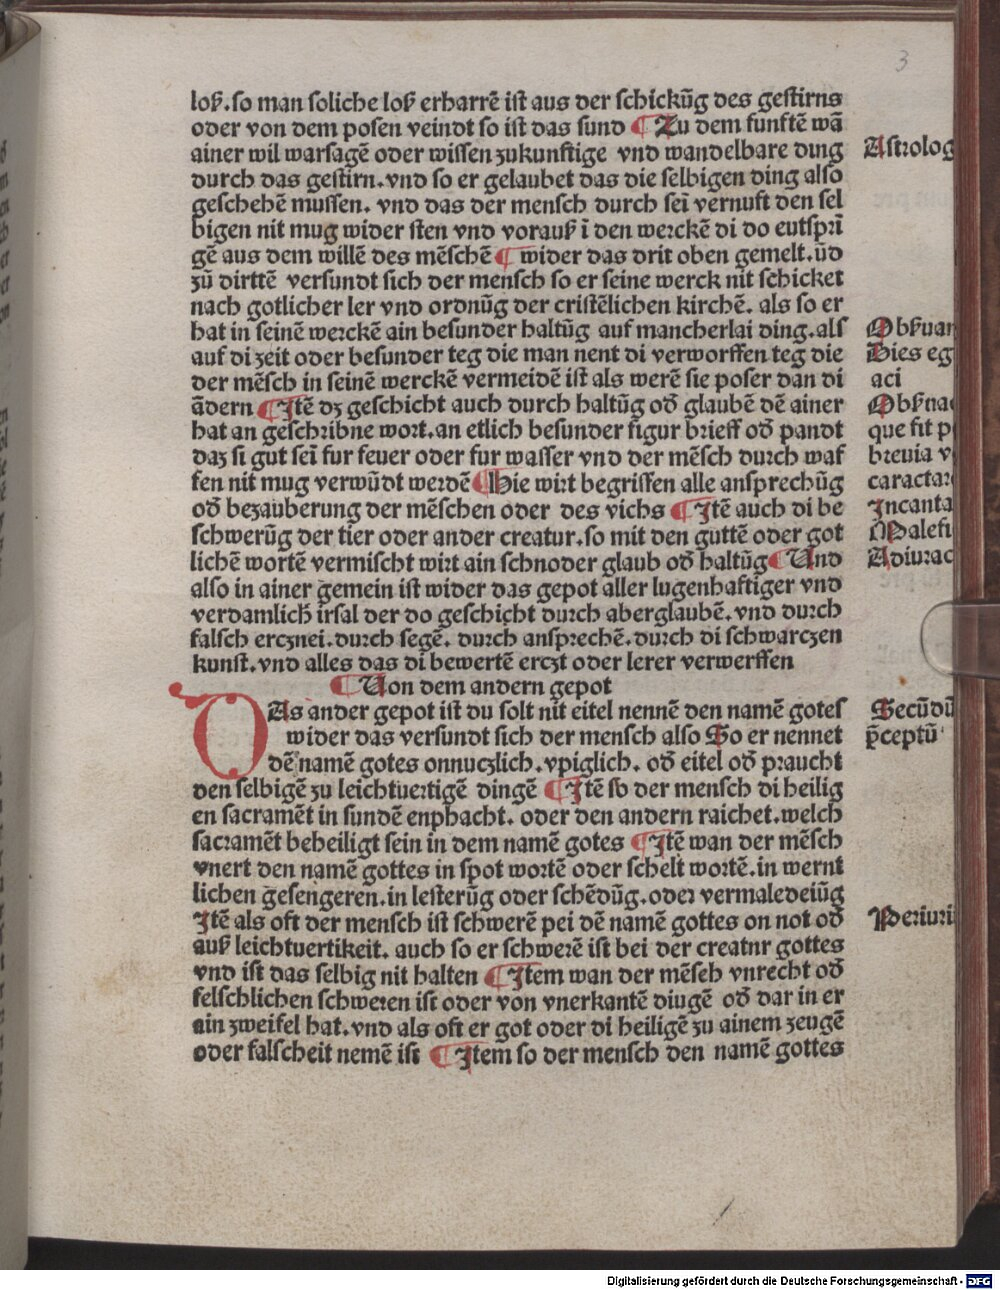 3
loß.so man soliche loß erharrē ist aus der schickūg des gestirns
oder von dem posen veindt so ist das sund ¶ Zu dem funftē wā
ainer wil warsagē oder wissen zukunftige vnd wandelbare ding
Astrolog
durch das gestirn.vnd so er gelaubet das die selbigen ding also
geschehē mussen. vnd das der mensch durch sei vernuft den sel
bigen nit mug wider sten vnd vorauß ī den werckē di do eutsprī
gē aus dem willē des mēschē ¶ wider das drit oben gemelt.ūd
zū dirttē versundt sich der mensch so er seine werck nit schicket
nach gotlicher ler vnd ordnūg der cristēlichen kirchē. als so er
hat in seinē werckē ain besunder haltūg auf mancherlai ding.als
Obẜuan
auf di zeit oder besunder teg die man nent di verworffen teg die
Dies eg
der mēsch in seinē werckē vermeidē ist als werē sie poser dan di
aci
ādern ¶ Jtē dz geschicht auch durch haltūg od̄ glaubē dē ainer
Obẜuac
hat an geschribne wort.an etlich besunder figur brieff od̄ pandt
que fit p
daz si gut sei fur feuer oder fur wasser vnd der mēsch durch waf
breuia v
fen nit mug verwūdt werdē ¶ Hie wirt begriffen alle ansprechūg
caractar
od̄ bezauberung der mēschen oder des vichs ¶ Jtē auch di be
Incanta
schwerūg der tier oder ander creatur.so mit den guttē oder got
Malefi
lichē wortē vermischt wirt ain schnoder glaub od̄ haltūg ¶ Vnd
Adiurac
also in ainer gemein ist wider das gepot aller lugenhaftiger vnd
verdamlich irsal der do geschicht durch aberglaubē.vnd durch
falsch ercznei.durch segē. durch ansprechē.durch di schwarczen
kunst.vnd alles das di bewertē erczt oder lerer verwerffen
¶ Von dem andern gepot
DAs ander gepot ist du solt nit eitel nennē den namē gotes
Secūdū
wider das versundt sich der mensch also So er nennet
p̄ceptū
dē namē gotes onnuczlich.vpiglich. od̄ eitel od̄ praucht
den selbigē zu leichtuertigē dingē ¶ Jtē so der mensch di heilig
en sacramēt in sundē enphacht. oder den andern raichet.welch
sacramēt beheiligt sein in dem namē gotes ¶ Jtē wan der mēsch
vnert den namē gottes in spot wortē oder schelt wortē.in wernt
lichen gesengeren.in lesterūg oder schēdūg.oder vermaledeiūg
Jtē als oft der mensch ist schwerē pei dē namē gottes on not od̄
Periuri
auß leichtuertikeit. auch so er schwerē ist bei der creatnr gottes
vnd ist das selbig nit halten ¶ Jtem wan der mēseh vnrecht od̄
felschlichen schweren ist oder von vnerkantē diugē od̄ dar in er
ain zweifel hat.vnd als oft er got oder di heiligē zu ainem zeugē
oder falscheit nemē ist ¶ Jtem so der mensch den namē gottes
Digitalisierung gefördert durch die Deutsche Forschungsgemeinschaft - DFG